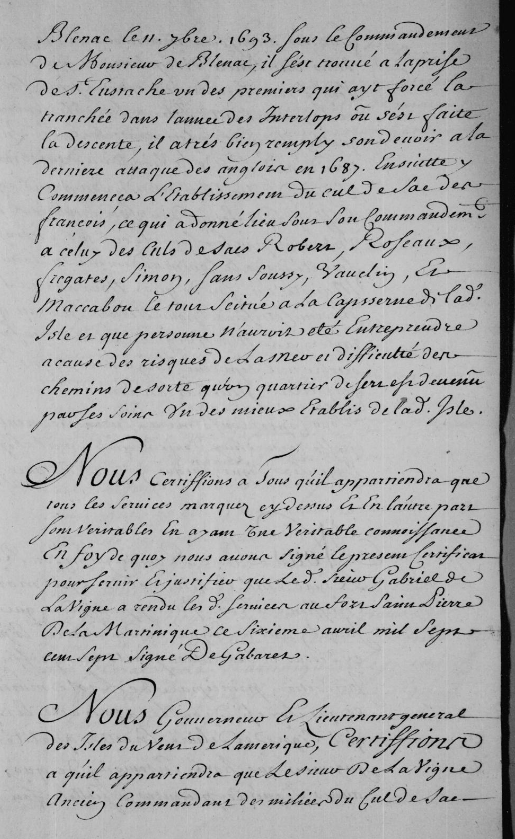 Blenac le 11. 7bre. 1693. sous le Commandement
de Monsieur de Blenac, il s'est trouué a la prise
de St. Eustache vn des premiers qui ayt forcé la
tranchée dans l'anneé des Interlops ou s'est faite
la descente, il a trés bien remply son deuoir a la
derniere attaque des anglois en 1687. Ensuitte y
Commencea L'Etablissement du cul de Sac des
francois, ce qui a donné lieu sous son Commandemt.
a céluy des Culs de Sacs Robert, Roseaux,
fregates, Simon, Sans Soussy, Vauclin, Et
Maccabou le tout Scitué a La Capsterne de lad.
Isle et que personne n'auroit eté Entreprendre
a cause des risques de La Mer et difficulté des
chemins de sorte qu'un quartier desert est deuenu
par ses soins Vn des mieux Etablis de lad. Isle.
Nous Certiffions a Tous qu'il appartiendra que
tous les Services marquez cy dessus Et En l'autre part
sont Veritables En ayant Vne Veritable connoissance
En foy de quoy nous auons Signé le present Certificat
pour seruir Et justifier que Le d. Sieur Gabriel de
La Vigne a rendu les d. Services au fort Saint Pierre
De La Martinique ce Sixieme auril mil Sept
cent Sept Signé De Gabaret.
Nous Gouuerneur Et Lieutenant general
des Isles du Vent de Lamerique, Certiffions
a qu'il appartiendra que Le Sieur De La Vigne
Ancien Commandant des milices du Cul de Sac